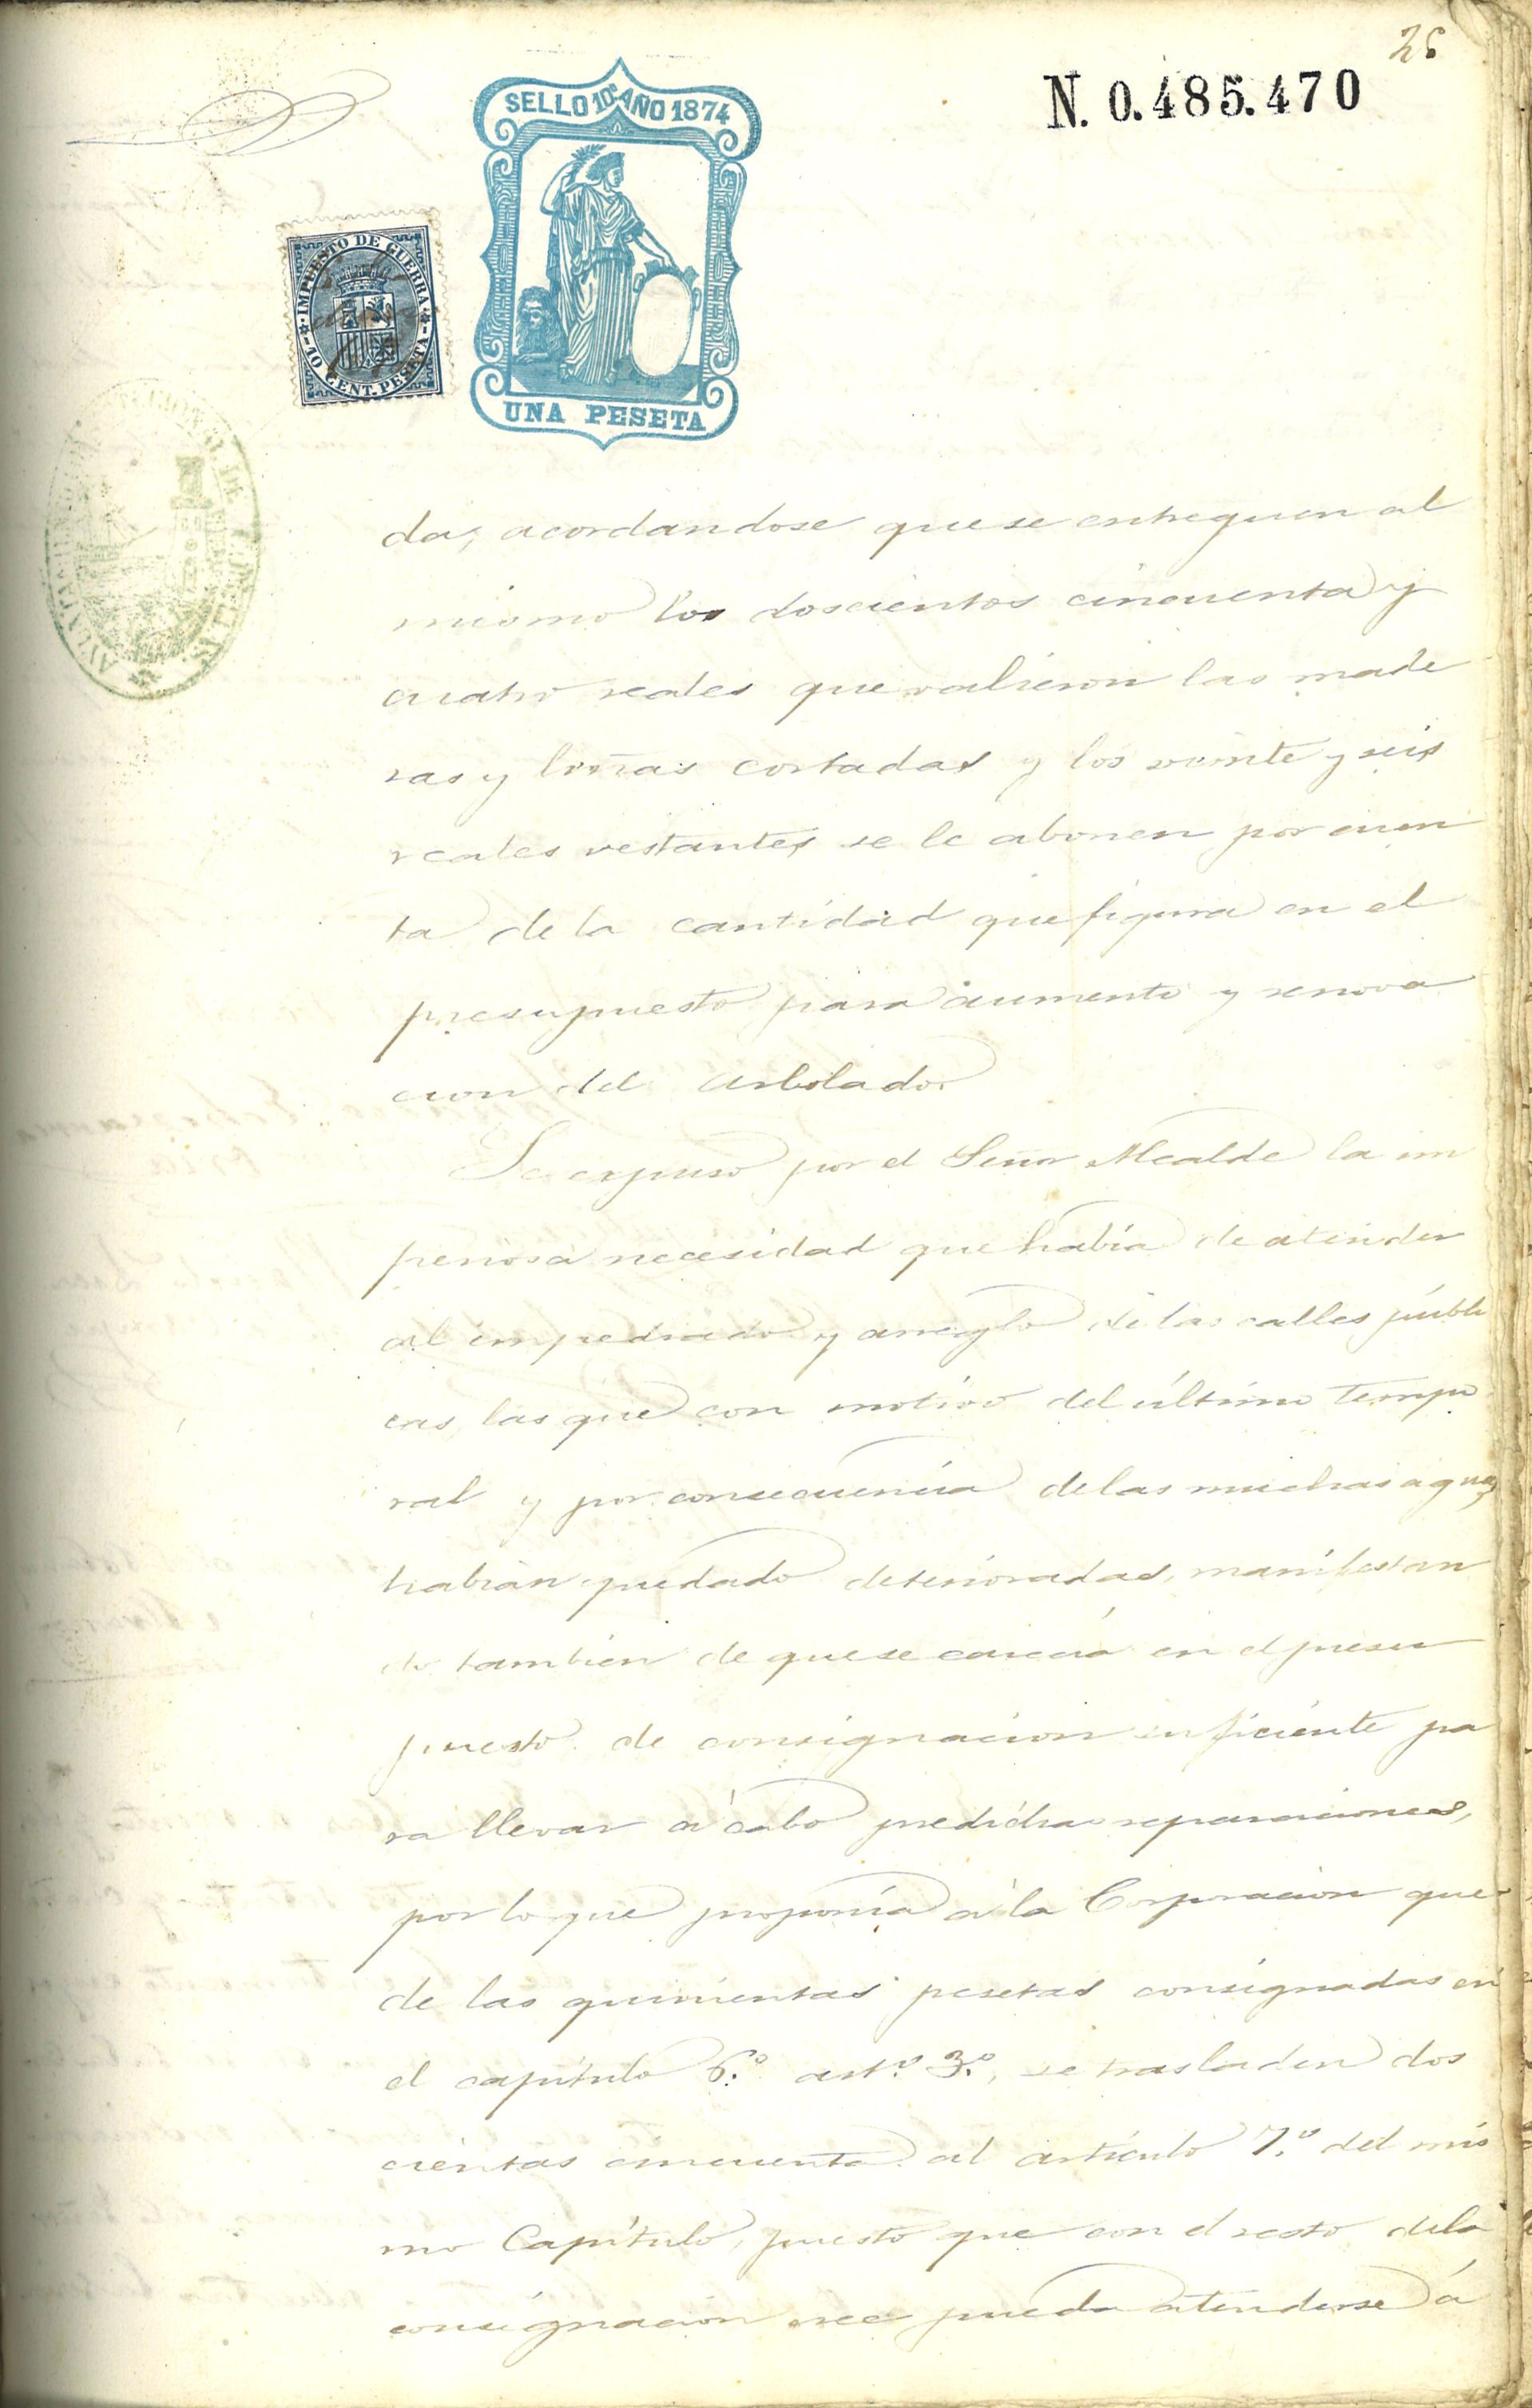 26
N. 0.485.470
SELLO 10º AÑO 1874
IMPUESTO DE GUERRA
10 CENT. PESETA
UNA PESETA
das, acordandose que se entreguen al
mismo los doscientos cincuenta y
cuatro reales que valieron las made
ras y leñas cortadas y los veinte y seis
reales restantes se le abonen por cuen
ta de la cantidad que figura en el
presupuesto para aumento y renova
cion del arbolado.
Se expuso por el Señor Alcalde la im
periosa necesidad que habia de atender
al empedrado y arreglo de las calles públi
cas, las que con motivo del último tempo
ral y por consecuencia de las muchas aguas
habian quedado deterioradas, manifestan
do tambien de que se carecia en el presu
puesto de consignacion suficiente pa
ra llevar á cabo predichas reparaciones,
por lo que proponia á la Corporacion que
de las quinientas pesetas consignadas en
el capítulo 6.º art.º 3.º, se trasladen dos
cientas cincuenta al artículo 7.º del mis
mo Capítulo, puesto que con el resto de la
consignacion puede atenderse á